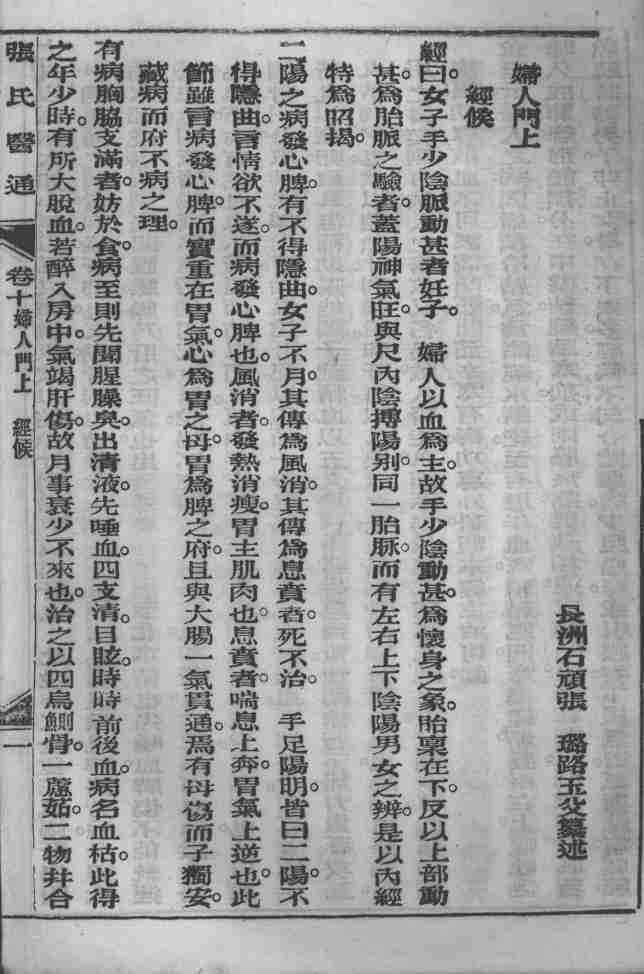 長洲石頑張　璐路玉父纂述
婦人門上
經候
經曰。女子手少陰脈動甚者。妊子。　婦人以血爲主。故手少陰動甚。爲懷身之象。胎稟在下。反以上部動
甚。爲胎脈之驗者。蓋陽神氣旺。與尺內陰搏陽別。同一胎脈。而有左右上下陰陽男女之辨。是以內經
特爲昭揭。
二陽之病發心脾。有不得隱曲。女子不月。其傳爲風消。其傳爲息賁者。死不治。　手足陽明。皆曰二陽。不
得隱曲。言情欲不遂。而病發心脾也。風消者。發熱消瘦。胃主肌肉也。息賁者。喘息上奔。胃氣上逆也。此
節雖言病發心脾。而實重在胃氣。心爲胃之母。胃爲脾之府。且與大腸一氣貫通。焉有母傷而子獨安。
藏病而府不病之理。
有病胸脇支滿者。妨於食。病至則先聞腥臊臭。出清液。先唾血。四支清。目眩。時時前後血。病名血枯。此得
之年少時。有所大脫血。若醉入房。中氣竭肝傷。故月事衰少不來也。治之以四烏鰂骨。一藘茹。二物幷合
張氏醫通
卷十婦人門上　經候
一